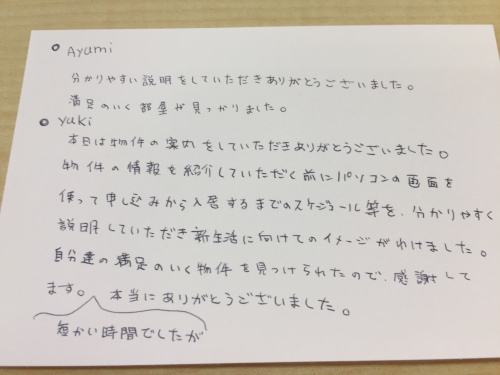 Ayumi
分かりやすい説明をしていただきありがとうございました。
満足のいく部屋が見つかりました。
yuki
本日は物件の案内をしていただきありがとうございました。
物件の情報を紹介していただく前にパソコンの画面を
使って申し込みから入居するまでのスケジュール等を、分かりやすく
説明していただき新生活に向けてのイメージがわけました。
自分達の満足のいく物件を見つけられたので、感謝して
ます。本当にありがとうございました。
短かい時間でしたが